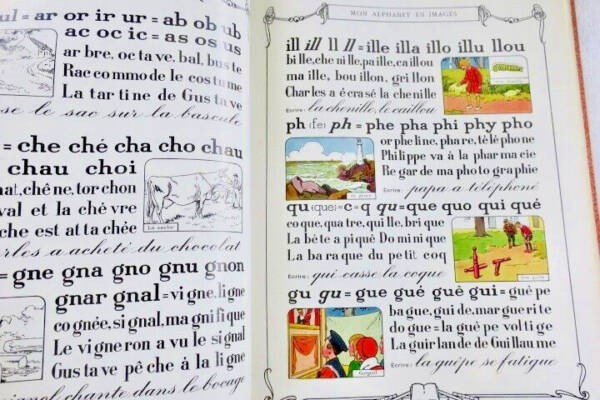 ul = ar or ir ur = ab ob ub
ac oc ic = as os us
ar bre, oc ta ve, bal, bus te
Rac com mo de le cos tu me
La tar ti ne de Gus ta ve
se le sac sur la bascule
= che ché cha cho chau
chau choi
chê ne, tor chon
val et la chè vre
che est at ta chée
La vache
rles a acheté du chocolat
= gne gna gno gnu gnon
gnar gnal = vi gne, li gne
co gnée, si gnal, ma gni fi que
Le vi gne ron a vu le si gnal
Gus ta ve pê che à la li gne
ignol chante dans le bocage
MON ALPHABET EN IMAGES
ill ill ll ll = ille illa illo illu illou
bi lle, che ni lle, pa ille, ca illou
ma ille, bou illon, gri llon
Char les a é cra sé la che ni lle
Écrire : la chenille, le caillou
ph (fe) ph = phe pha phi phy pho
or phe line, pha re, té lé pho ne
Phi lippe va à la phar ma cie
Re gar de ma pho to gra phie
Écrire : papa a téléphoné
qu (que) = c = q qu = que quo qui qué
co que, qua tre, qui lle, bri que
La bê te a pi qué Do mi ni que
La ba ra que du pe tit coq
Écrire : qui casse la coque
gu gu = gue gué guê gui = guê pe
ba gue, gui de, mar gue ri te
do gue = la guê pe vol ti ge
La guir lan de de Gui llau me
Écrire : la guêpe se fatigue
Guignol